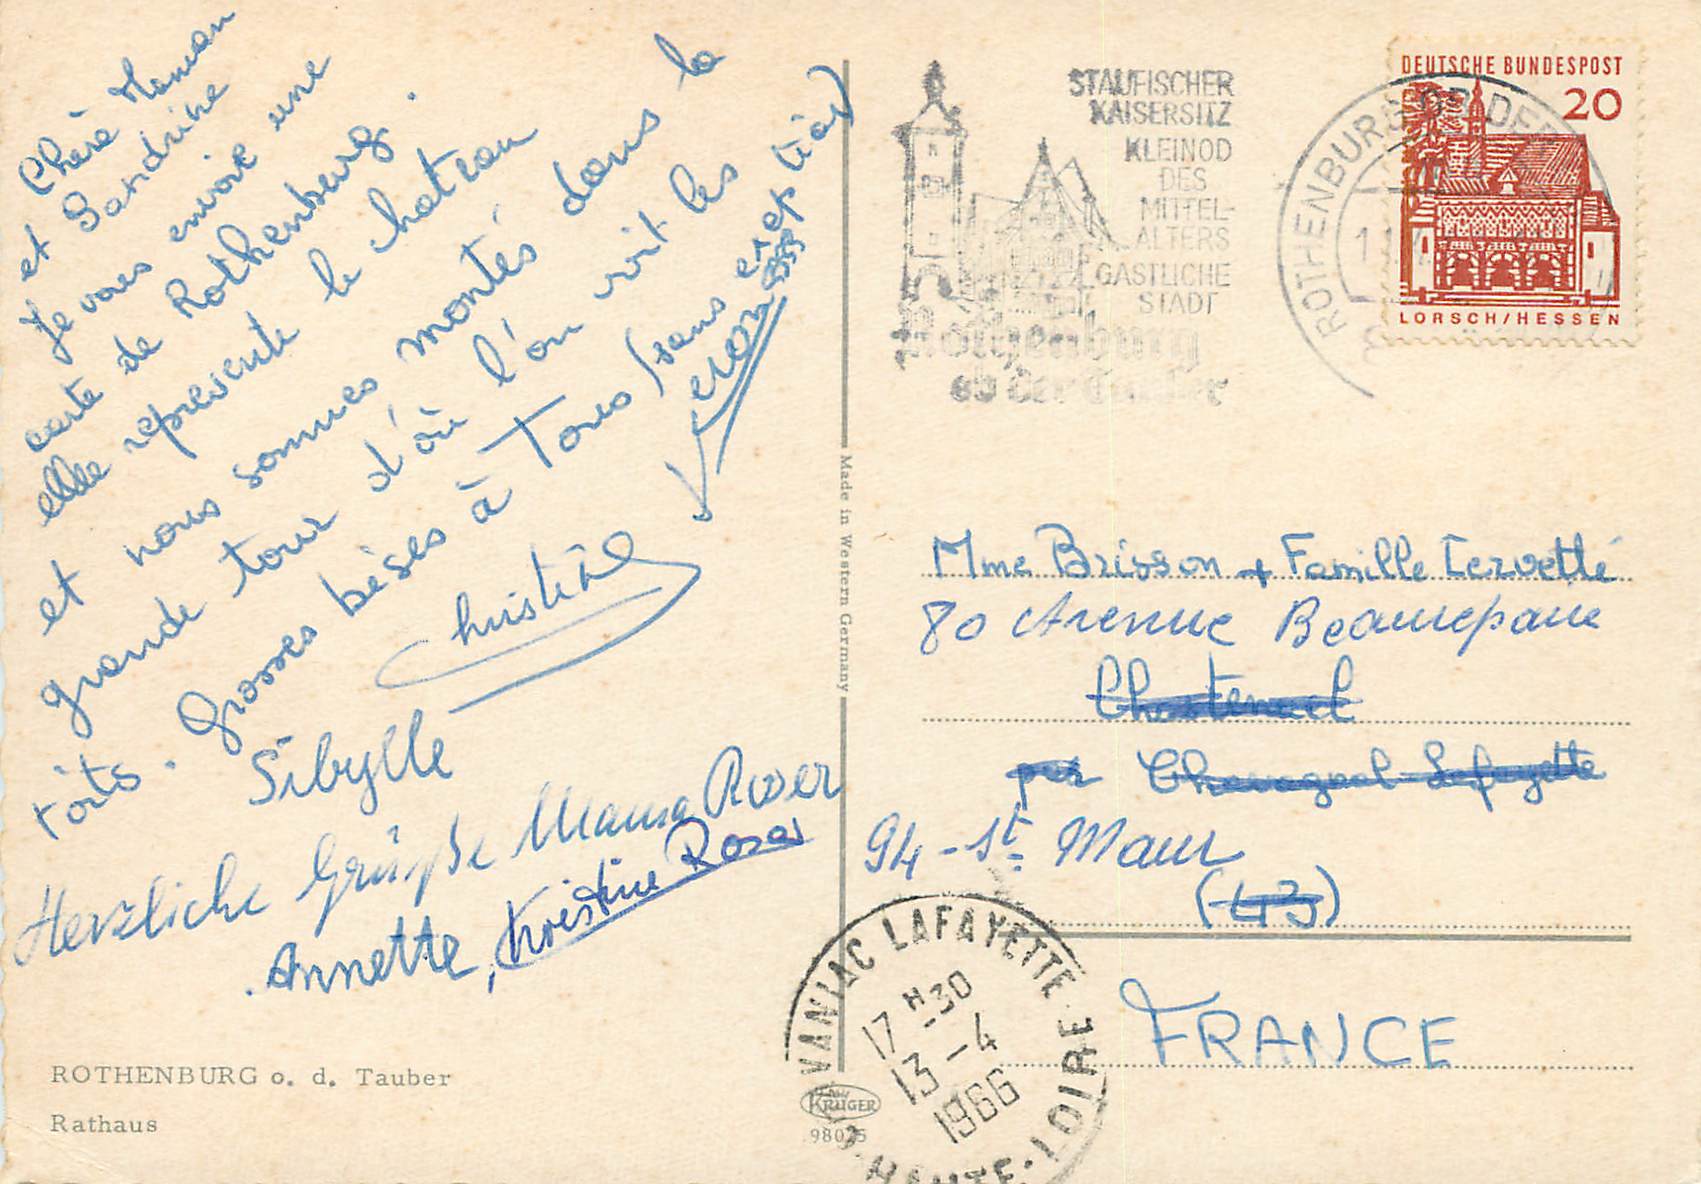 Chère Maman
et Sandrine
Je vous envoie une
carte de Rothenburg.
elle represente le chateau
et nous sommes montés dans la
grande tour d'où l'on voit les
toits. Grosses bèses à Tous (sans exeption)
Christine
Sibylle
Herzliche Grüße Mama Roser
Annette, Kristine Roser
ROTHENBURG o. d. Tauber
Rathaus
Made in Western Germany
KRÜGER
STAUFISCHER
KAISERSITZ
KLEINOD
DES
MITTEL-
ALTERS
GASTLICHE
STADT
Rothenburg
ob der Tauber
ROTHENBURG OB DER
DEUTSCHE BUNDESPOST
20
LORSCH/HESSEN
Mme Brisson + Famille Cervetti
80 Avenue Beaurepaire
Chastenuel
par Chavagnac Lafayette
94-St. Maur
(43)
FRANCE
VANIAC LAFAYETTE
17H30
13-4
1966
HAUTE-LOIRE